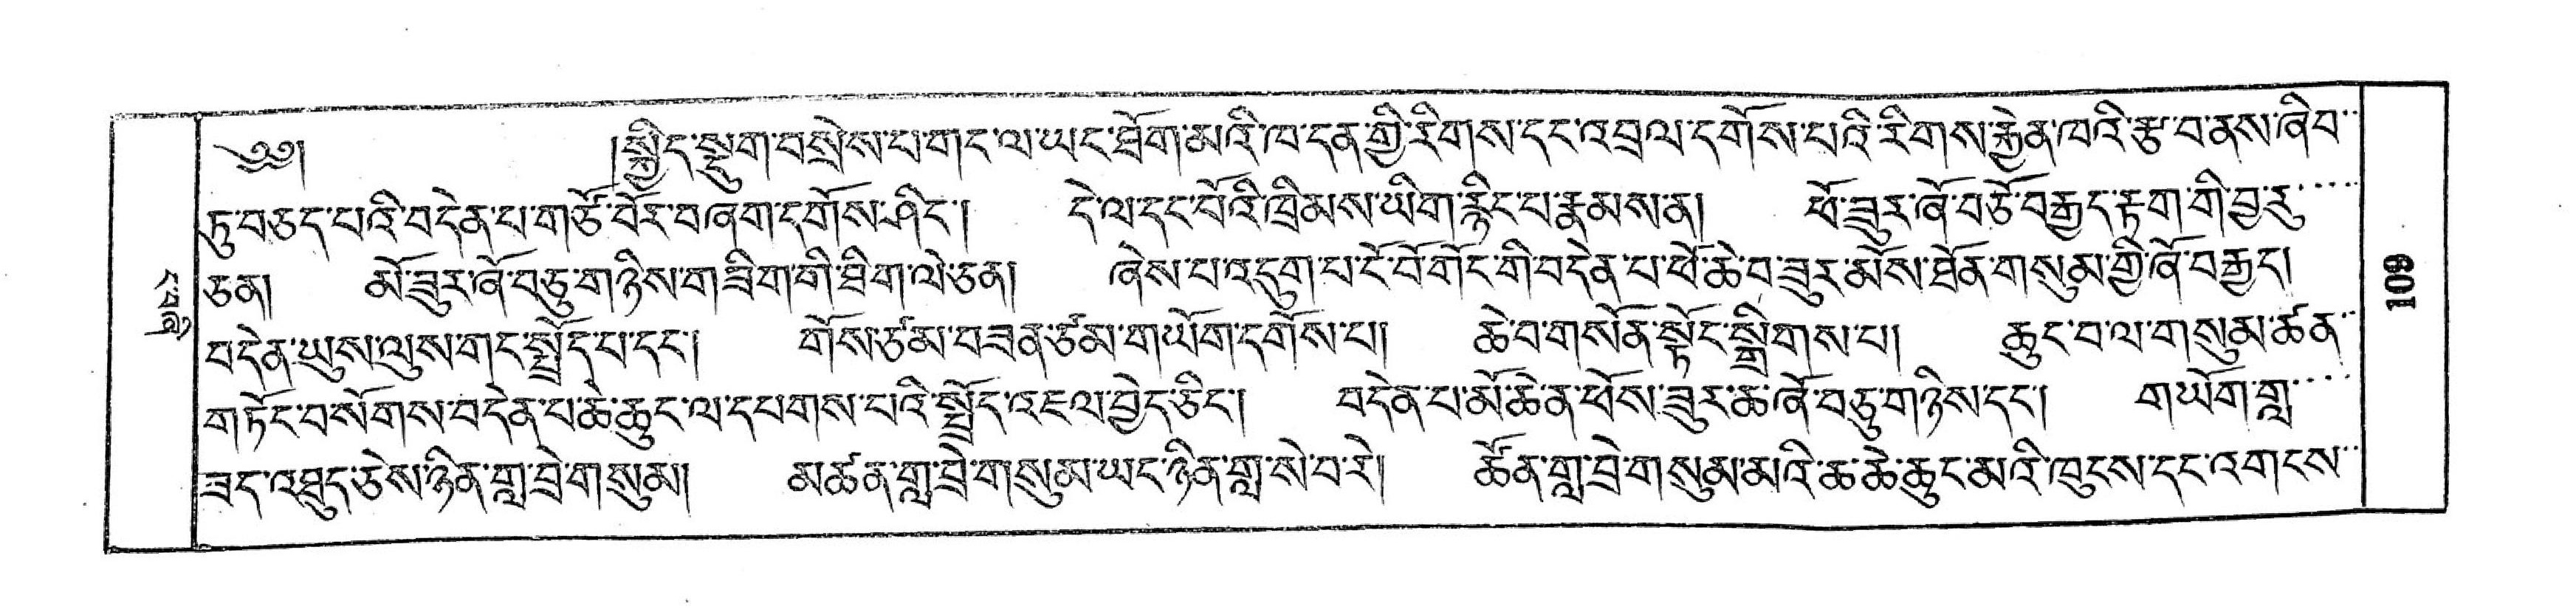 ༄༅། །སྐྱིད་སྡུག་བསྲེས་པ་གང་ལ་ཡང་ཐོག་མའི་ཁ་དན་གྱི་རིགས་དང་འབྲལ་དགོས་པའི་རིགས་རྐྱེན་ཁའི་རྩ་བ་ནས་ཞིབ་
ཏུ་བཅད་པའི་བདེན་པ་གཙོ་བོར་བཞག་དགོས་ཤིང༌། དེ་ལ་དང་པོའི་ཁྲིམས་ཡིག་རྙིང་པ་རྣམས་ན། ཕོ་ཟུར་ཞོ་བཅོ་བརྒྱད་རྟག་གི་བྱ་རུ་
ཅན། མོ་ཟུར་ཞོ་བཅུ་གཉིས་གཟིག་གི་ཐིག་ལེ་ཅན། ཞེས་པ་འདུག་པ་ངོ་བོ་གོང་གི་བདེན་པ་ཕོ་ཆེ་བ་ཟུར་མོས་ཐོན་གསུམ་གྱི་ཞོ་བརྒྱད།
བདེན་ཡུས་ལུས་གང་སྤྲོད་པ་དང༌། གོས་ཙམ་བཟན་ཙམ་གཡོག་དགོས་པ། ཆེ་བ་གསོན་སྟོང་སྒྲིགས་པ། ཆུང་བ་ལ་གསུམ་ཚན་
གཏོང་བསོགས་བདེན་པ་ཆེ་ཆུང་ལ་དཔགས་པའི་སྤྲོད་འཇལ་བྱེད་ཅིང༌། བདེན་པ་མོ་ཆེན་ཕོས་ཟུར་ཆ་ཞོ་བཅུ་གཉིས་དང༌། གཡོག་གླ་
ཟད་འཐུད་ཅེས་ཉིན་གླ་བྲེ་གསུམ། མཚན་གླ་བྲེ་གསུམ་ཡང་ཉིན་གླ་སེ་བ་རེ། ཚོན་གླ་བྲེ་གསུམ་མའི་ཆ་ཆེ་ཆུང་མའི་ཁུངས་དང་འགངས་
109